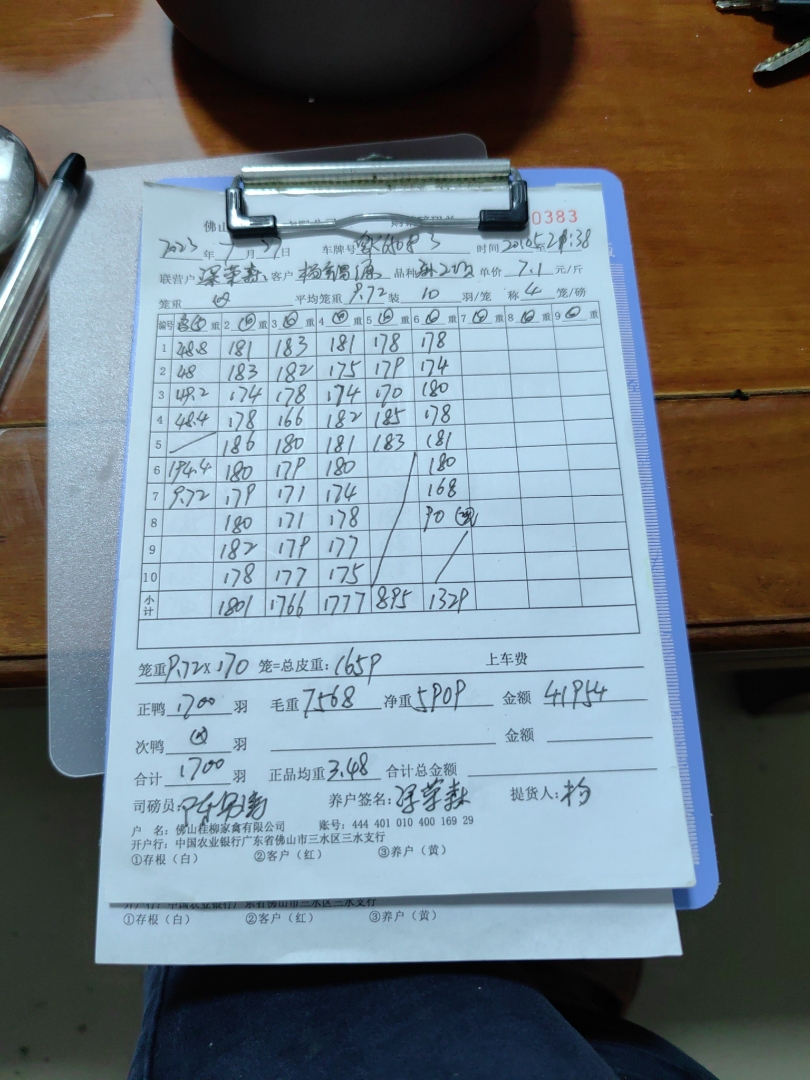 佛山
0383
2023年7月27日 车牌号 时间 2005至21:38
联营户 梁荣森 客户 杨 品种 单价 7.1 元/斤
笼重 平均笼重 9.72 装 10 羽/笼 称 4 笼/磅
编号 重 2 重 3 重 4 重 5 重 6 重 7 重 8 重 9 重
1 48.8 181 183 181 178 178
2 48 183 182 175 179 174
3 49.2 174 178 174 170 180
4 48.4 178 166 182 185 178
5 186 180 181 183 181
6 194.4 180 179 180 180
7 9.72 179 171 174 168
8 180 171 178 90
9 182 179 177
10 178 177 175
小计 1801 1766 1777 895 1329
笼重 9.72 x 170 笼=总皮重: 1659 上车费
正鸭 1700 羽 毛重 7568 净重 5909 金额 41954
次鸭 羽 金额
合计 1700 羽 正品均重 3.48 合计总金额
司磅员: 养户签名: 梁荣森 提货人: 杨
户 名: 佛山桂柳家禽有限公司 账号: 444 401 010 400 169 29
开户行: 中国农业银行广东省佛山市三水区三水支行
①存根（白） ②客户（红） ③养户（黄）
开户行: 中国农业银行广东省佛山市三水区三水支行
①存根（白） ②客户（红） ③养户（黄）